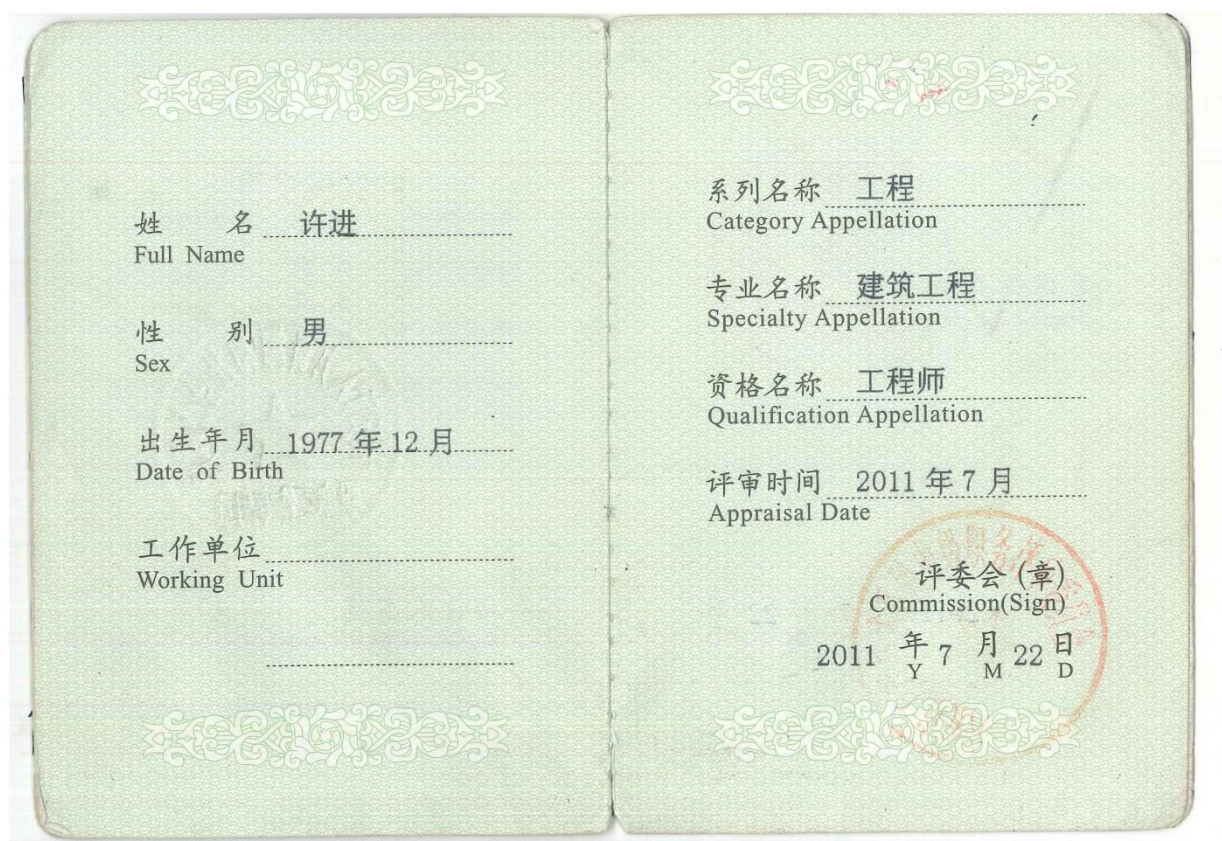 姓 名 许进
Full Name
性 别 男
Sex
出生年月 1977 年 12 月
Date of Birth
工作单位
Working Unit
系列名称 工程
Category Appellation
专业名称 建筑工程
Specialty Appellation
资格名称 工程师
Qualification Appellation
评审时间 2011 年 7 月
Appraisal Date
评委会 (章)
Commission(Sign)
2011 年 7 月 22 日
Y M D